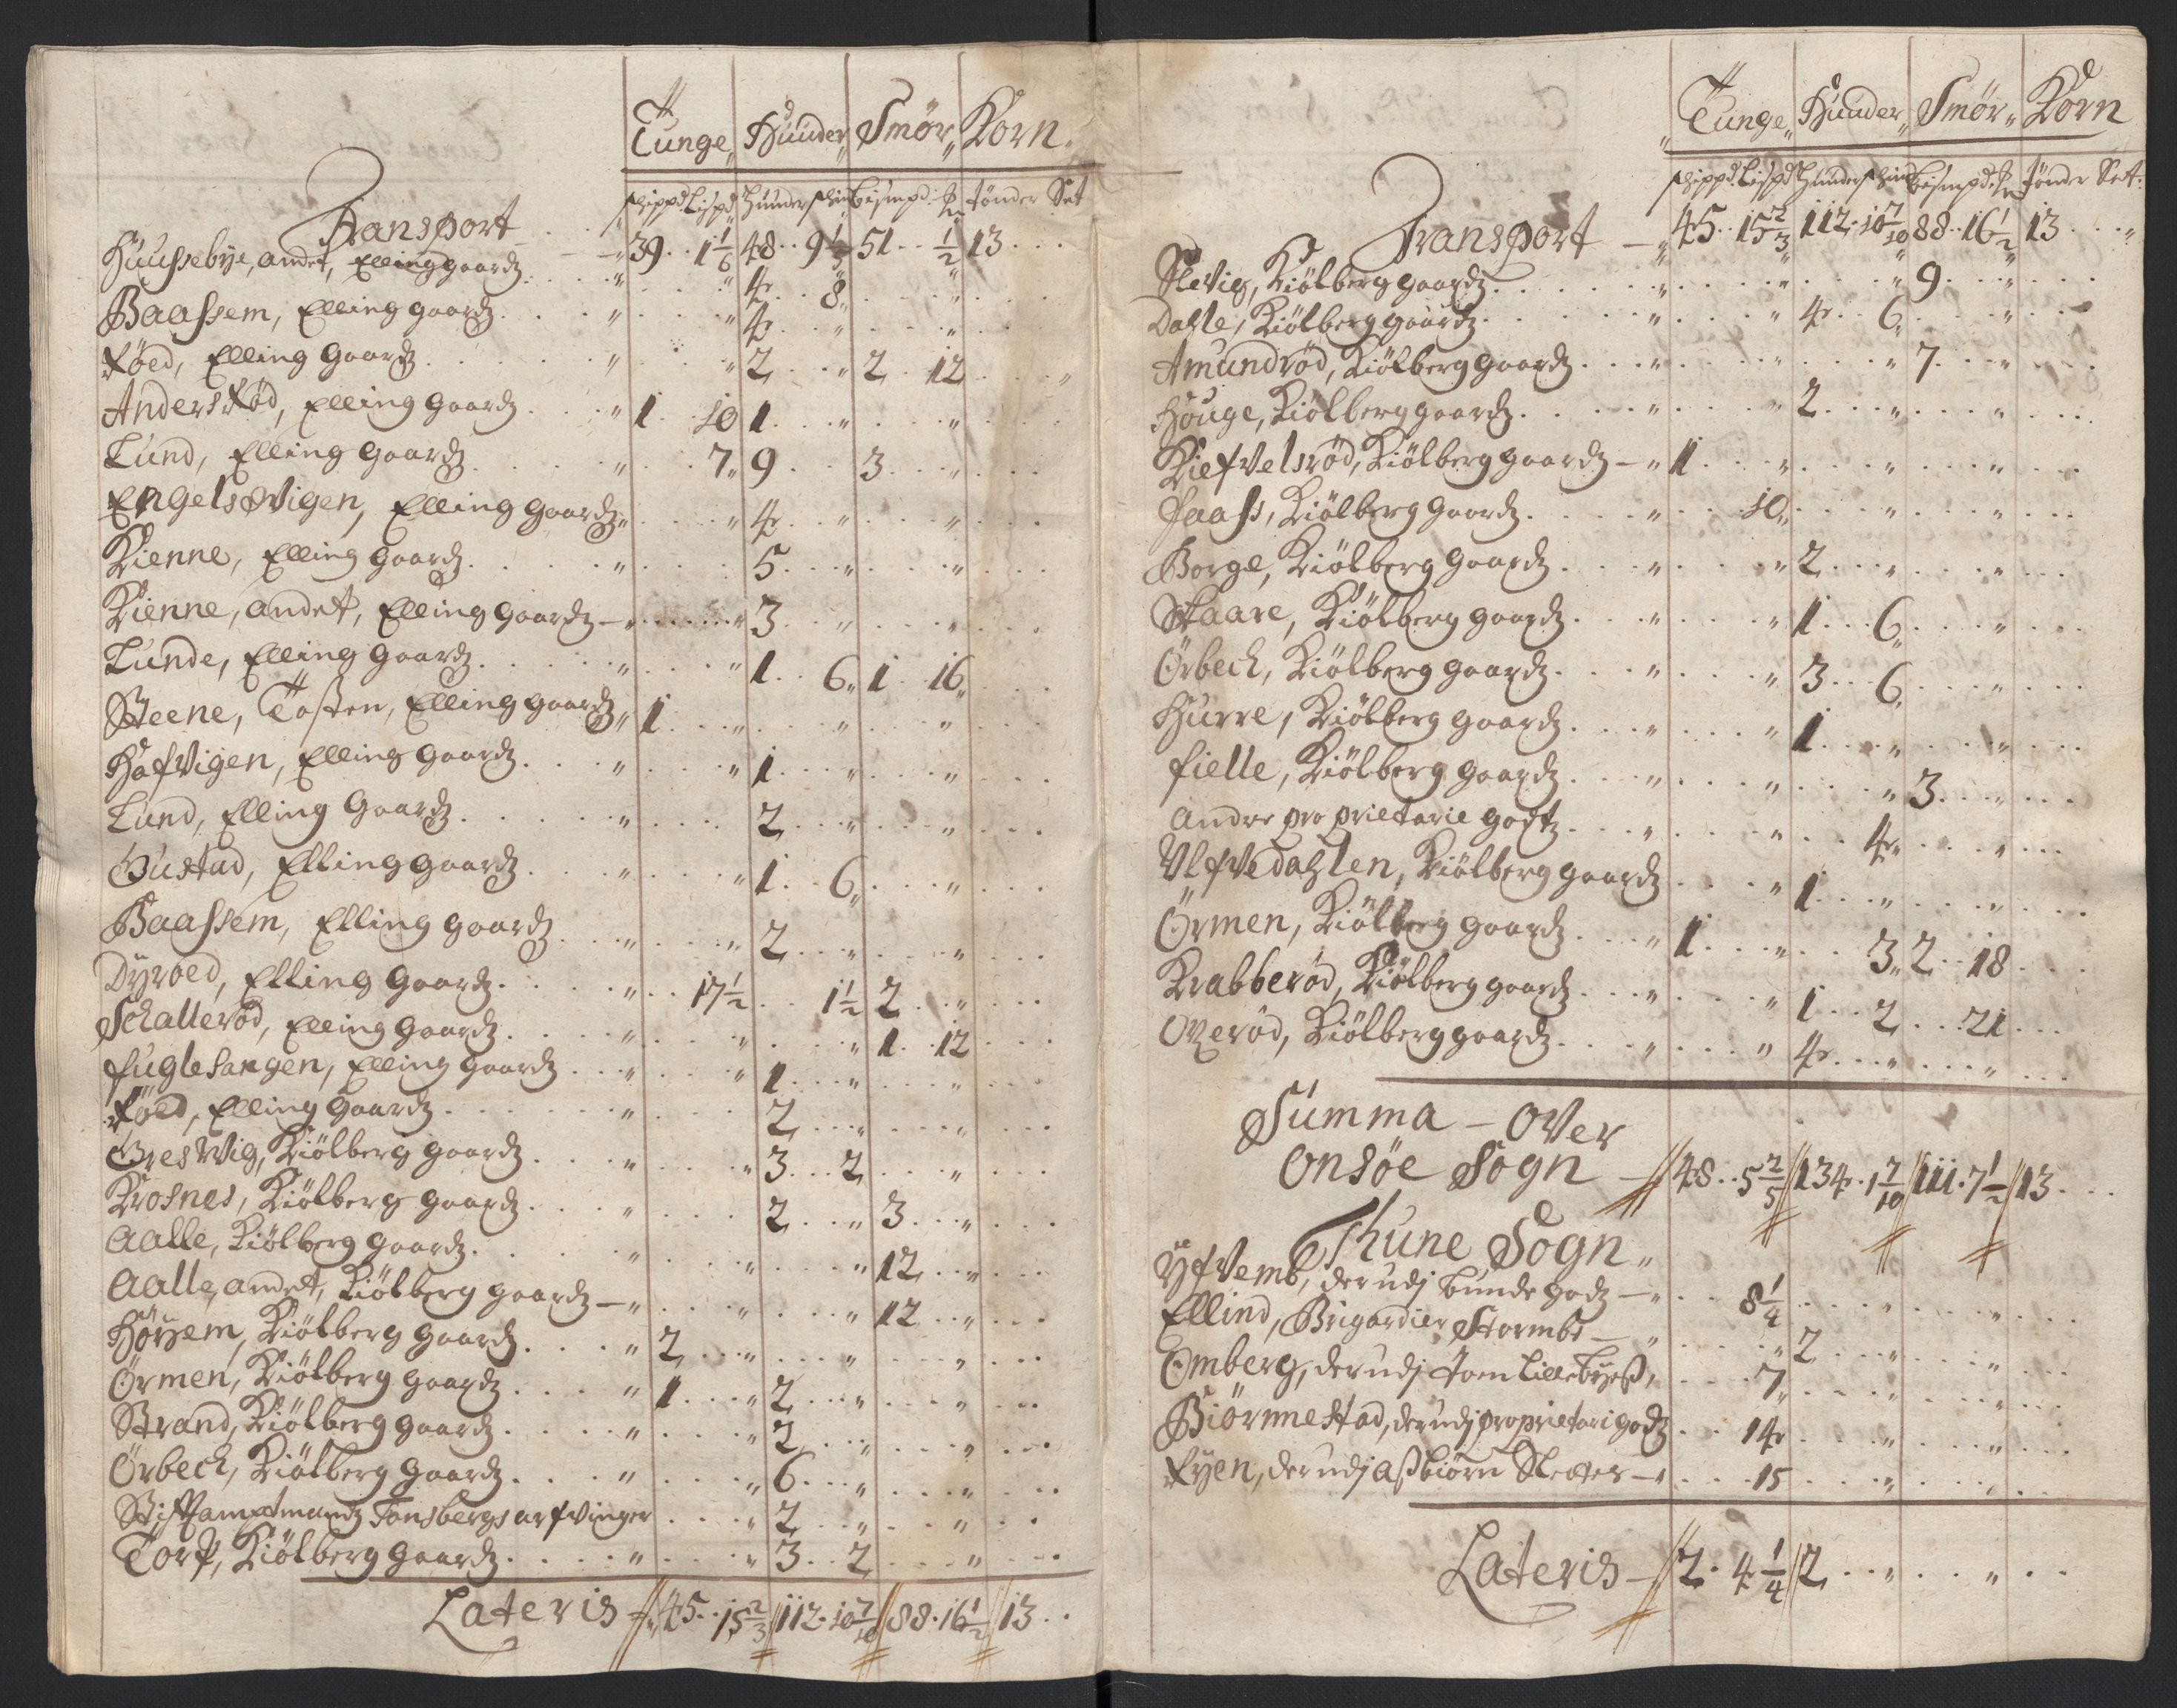 Tunge „ Huuder „ Smør „ Korn „
schippd: Lispd Huuder schin Bismpd: ℔ Tønder Set
Transport - - „ 39 .. 1 1/6 48 .. 9 1/5 51 .. 1/2 13 . . .
Huussebye, andet, Elling gaardz . . . „ . . . „ 4 .. 8 „ . . . „ . . .
Baassem, Elling gaardz . . . „ . . . „ 4 . . „ . . . „ . . .
Røed, Elling gaardz . . . „ . . . „ 2 . . „ 2 . . 12 . . . „
Anders Rød, Elling gaardz . . . „ 1 . . 10 1 . . . „ . . . „ . . .
Lund, Elling gaardz . . . „ . . . 7 „ 9 . . 3 . . „ . . .
EngelsWigen, Elling gaardz „ . . . „ 4 . . „ . . . „ . . .
Kienne, Elling gaardz . . . „ . . . 5 . . . „ . . . „ . . .
Kienne, andet, Elling gaardz - „ . . . „ 3 . . „ . . . „ . . .
Lunde, Elling gaardz . . . „ . . . „ 1 . . 6 „ 1 . . 16 „ . . .
Steene, Tosten, Elling gaardz „ 1 . . . „ . . . „ . . . „ . . .
Hafvigen, Elling gaardz . . . „ . . . „ 1 . . . „ . . . „ . . .
Lund, Elling gaardz . . . „ . . . 2 . . . „ . . . „ . . .
Gustad, Elling gaardz . . . „ . . . „ 1 . . 6 „ . . . „ . . .
Baassem, Elling gaardz . . . „ . . . „ 2 . . . „ . . . „ . . .
Dyroed, Elling gaardz . . . „ . . 17 1/2 . . 1 1/2 2 . . „ . . .
Schallerød, Elling gaardz . . . „ . . . „ . . . „ 1 . . 12 . . .
fuglesangen, Elling gaardz . . . „ . . . „ 1 . . . „ . . . „ . . .
Røed, Elling gaardz . . . „ . . . 2 . . . „ . . . „ . . .
GresWig, Kiølberg gaardz . . . „ . . . „ 3 . . 2 . . . „ . . .
Krosnes, Kiølberg gaardz . . . „ . . . 2 . . . „ 3 . . . „ . . .
Aalle, Kiølberg gaardz . . . „ . . . „ . . . „ 12 . . „ . . .
Aalle, andet, Kiølberg gaardz - „ . . . „ . . . „ 12 . . „ . . .
Høyem, Kiølberg gaardz . . . „ 2 . . . „ . . . „ . . . „ . . .
Ørmen, Kiølberg gaardz . . . „ 1 . . . „ 2 . . . „ . . . „ . . .
Strand, Kiølberg gaardz . . . „ . . . „ 2 . . . „ . . . „ . . .
Ørbech, Kiølberg gaardz . . . „ . . . „ 6 . . . „ . . . „ . . .
Stifftamptmandz Tonsbergs arfvinger . . . „ 2 . . . „ . . . „ . . .
Torp, Kiølberg gaardz . . . „ . . . „ 3 . . 2 . . . „ . . .
Lateris - 45 . . 15 2/3 112 . 10 7/10 88 . 16 1/2 13 . .
„ Tunge „ Huuder „ Smør „ Korn
schippd: Lispd Huuder schin Bismpd: ℔ Tønder Sett:
Transport - „ 45 . 15 2/3 112 . 10 7/10 88 . 16 1/2 13 . . „
Slevig, Kiølberg gaardz . . . „ . . . „ . . . „ 9 . . „ . . .
Dahle, Kiølberg gaardz . . . „ . . . „ 4 . . 6 „ . . . „ . . .
Amundrød, Kiølberg gaardz . . . „ . . . „ . . . „ 7 . . „ . . .
Houge, Kiølberg gaardz . . . „ . . . „ 2 . . . „ . . . „ . . .
Kiefvelsrød, Kiølberg gaardz - „ 1 . . . „ . . . „ . . . „ . . .
Faass, Kiølberg gaardz . . . „ . . 10 „ . . . „ . . . „ . . .
Borge, Kiølberg gaardz . . . „ . . . „ 2 . . . „ . . . „ . . .
Skaare, Kiølberg gaardz . . . „ . . . „ 1 . . 6 „ . . . „ . . .
Ørbech, Kiølberg gaardz . . . „ . . . „ 3 . . 6 „ . . . „ . . .
Hurre, Kiølberg gaardz . . . „ . . . „ 1 . . . „ . . . „ . . .
fielle, Kiølberg gaardz . . . „ . . . „ . . . „ 3 . . . „ . . .
Andre proprietarie godtz . . . „ . . . „ . . 4 „ . . . „ . . .
Ulfvedahlen, Kiølberg gaardz . . . „ 1 . . . „ . . . „ . . .
Ørmen, Kiølberg gaardz . . . „ 1 . . . „ . . 3 „ 2 . . 18 . . .
Krabberød, Kiølberg gaardz . . . „ . . . „ 1 . . 2 . . . 21 . . .
Ouerød, Kiølberg gaardz . . . „ . . . „ 4 . . . „ . . . „ . . .
Summa - Over
Onsøe Sogn - 48 . . 5 2/5 134 . 1 7/10 111 . 7 1/2 13 . . .
Thune Sogn „
Yfvemb, derudj bunde godz - „ . . 8 1/4 . . . „ . . . „ . . .
Ellind, Brigardier Stormbs - „ . . . „ 2 . . . „ . . . „ . . .
Omberg, derudj Joen Lillebyess, . . . 7 „ . . . „ . . . „ . . .
Biørnnestad, derudj proprietari godz . . 14 . . . „ . . . „ . . .
Ryen, derudj Assbiørn Sletter - „ . . . 15 . . . „ . . . „ . . .
Lateris - 2 . 4 1/4 2 . . „ . . „ . .